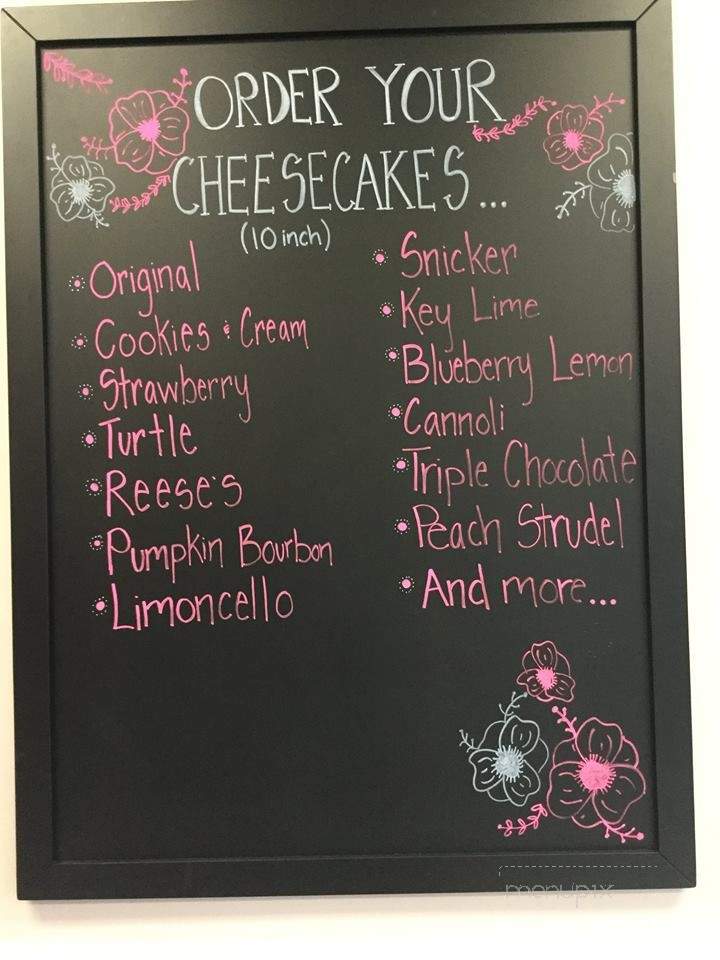 ORDER YOUR
CHEESECAKES...
(10 inch)
Original
Cookies & Cream
Strawberry
Turtle
Reese's
Pumpkin Bourbon
Limoncello
Snicker
Key Lime
Blueberry Lemon
Cannoli
Triple Chocolate
Peach Strudel
And more...
menupix